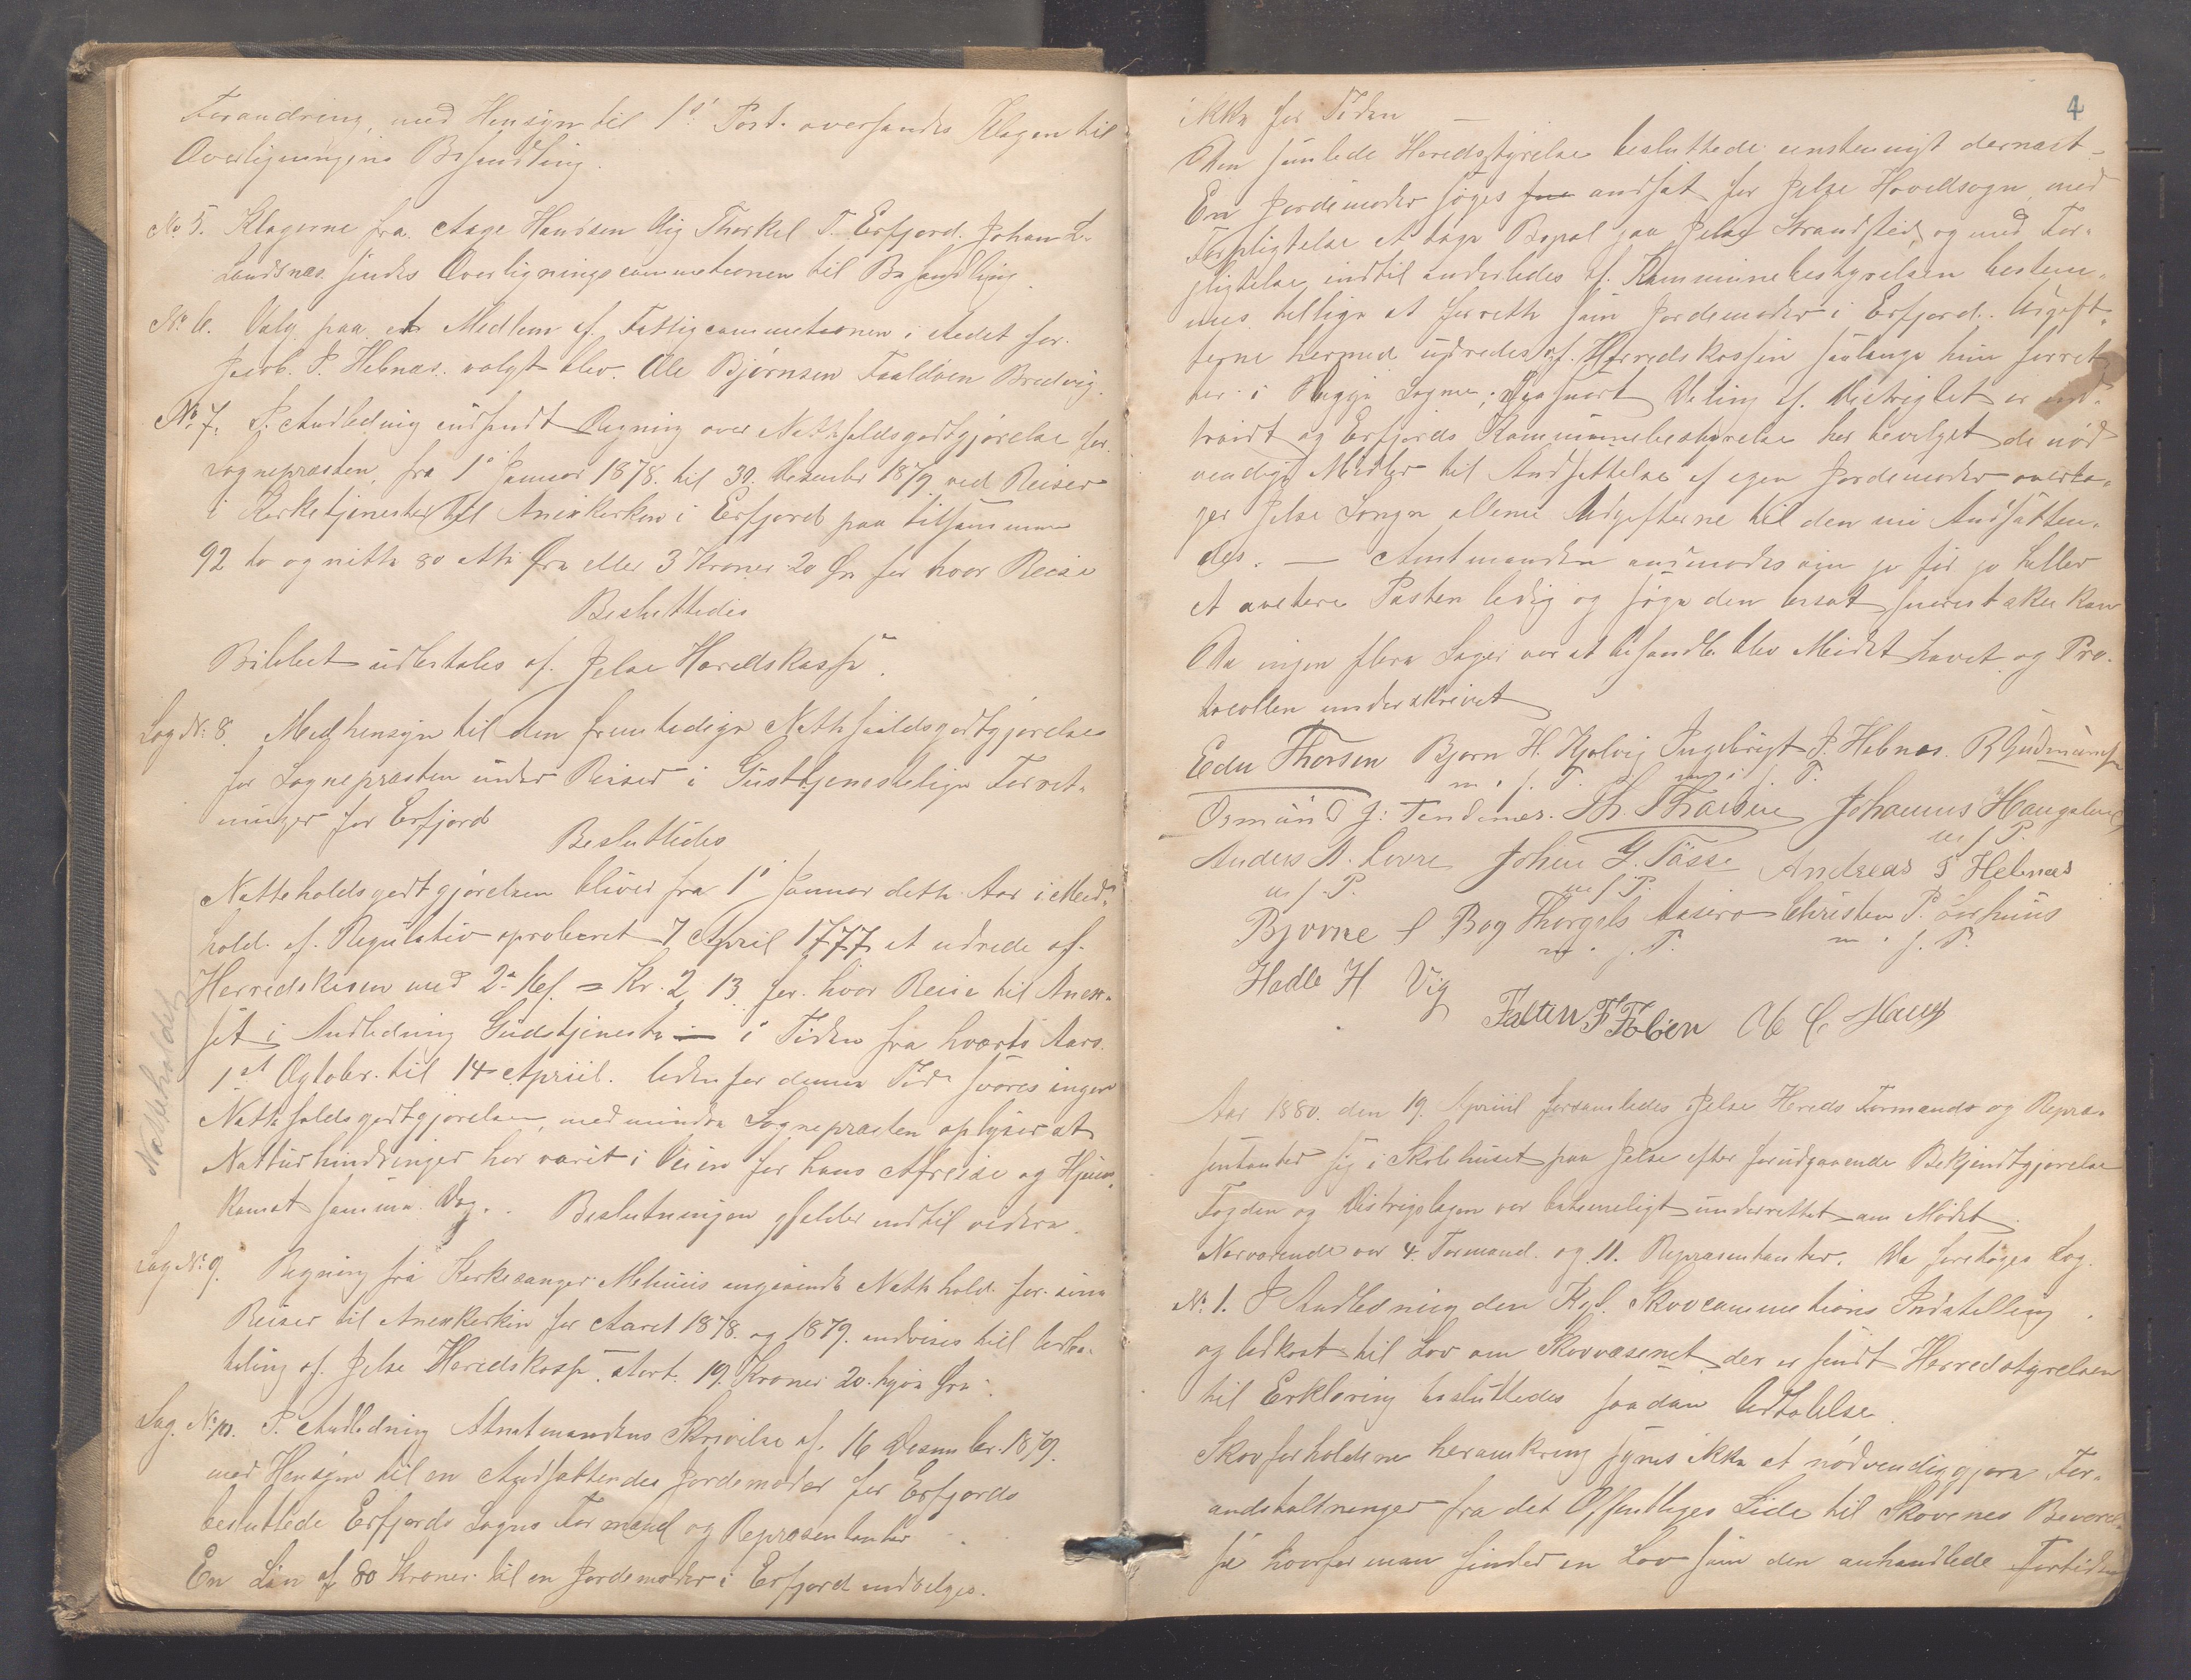 Forandring, med Hensyn til 1ste Post. oversendes Klagen til
Overligningens Behandling.
No 5. Klagerne fra Aage Hanssen Vig Thorkel T. Erfjord. Johan L.
Landsnæs. sendes Overligningscommetionen til Behandling.
No. 6. Valg paa et Medlem af Fattigcommetionen i stedet for.
Jacob. P. Hebnæs. valgt blev. Ole Bjørnsen Foldøen Bredvig.
No 7. I. Andledning indsendt Regning over Natteholdsgodtgjørelse for.
Sognepræsten, fra 1ste Januar 1878. til 30. Desember 1879 ved Reiser
i Kirketjenester til Anexkirken i Erfjord paa tilsammen
92 to og nitti 80 otti Øre eller 3 Kroner 20 Øre for hver Reise
Besluttedes
Beløbet udbetales af. Jelse Heredskasse.
Sag No: 8. Med hensyn til den fremtidige Natteholdsgodtgjørelse
for Sognepræsten under Reiser i Gusttjenestelige Forret-
ninger for Erfjord
Besluttedes
Natteholdsgodtgjørelsen bliver fra 1ste Januar dette Aar i Med-
hold. af. Regulativ aproberet 7 April 1777 at udrede af.
Herredskasen med 2 = Kr. 2, 13 for. hver Reise til Anex-
set i Andledning Gudstjeneste — i Tiden fra hværts Aars.
1st Ogtober. til 14 Apriil. Udenfor denne Tid svares ingen
Natteholdsgodtgjørelse, med mindre Sognepræsten oplyser at
Natturhindringer har været i Veien for hans Afreise og Hjem-
komst samme. Dag. Beslutningen gjelder indtil videre
Natteholdet
Sag No 9. Regning fra Kirkesanger Mehuus angaaende Nattehold. for. sine
Reiser til Anexkirken for Aaret 1878. og 1879. andvises till Udbe-
taling af. Jelse Heredskasse. stort. 19. Kroner 20. tyve Øre.
Sag. No 10. I. Andledning Amtmandens Skrivelse af. 16 Desember. 1879.
med Hensyn til en Andsættendes Jordemoder for Erfjords
besluttede Erfjords Sogns Formænd og Repræsentanter
En Løn af 80 Kroner. til en Jordemoder i Erfjord indvelges.
4
ikke for Tiden —
Den samlede Heredsstyrelse besluttede eenstemigt dernæst
En Jordemoder søges andsat for Jelse Hovedsogn, med
Forpligtelse at tage Bopæl paa Jelse Strandsted og med For-
pligtelse indtil anderledes af. Kommunebestyrelsen bestem-
mes tellige at forrette som Jordemoder i Erfjord. Udgift-
terne hermed udredes af. Herredskassen saalenge hun forret-
ter i begge Sogne; Saasnart Deling af. Distrigtet er ind-
traadt og Erfjords Kommunebestyrelse har bevilget de nød-
vendige Midler til Andsettelse af egen Jordemoder overta-
ger Jelse Songn allene Udgifterne til den nu Andsætten-
des. — Amtmanden anmodes om jo før jo heller
at avetere Posten ledig og søge den besat snarest skee kan
Da ingen flere Sager var at behandle blev Mødet hævet og Pro-
tocollen underskrivet
Edv Thorsen Bjørn H. Kjølvig Ingebrigt P. Hebnæs. R Gudmunds
m. f. P. m. i. f. P.
Osmund J: Tendenes. Th. Thorsen Johannes Haugaland
m f P.
Anders A. Lovre John G. Tasse Andreas S Hebnæs
m f. P. m f P.
Bjorne S Bog Thorgels Aasero Christen P. Sørhuus
m. f. P. m. f. P.
Hadle H Vig
Falten F Foløen Ol C. Haug
Aar 1880. den 19. Apriil forsamledes Jelse Hereds Formænds og Repræ-
sentanter sig i Skolehuset paa Jelse efter forudgaaende Bekjendtgjørelse
Fogden og Distrigslægen var betimeligt underrettet om Mødet
Nærværende var 4. Formænd. og 11. Repræsentanter. Da foretoges Sag.
No. 1. I Andledning den Kgl. Skovcommetions Indstelling
og Udkast til Lov om Skovvæsenet der er sendt Herredstyrelsen
til Erklæring besluttedes saadan Udtalelse.
Skovforholdene heromkring synes ikke at nødvendiggjøre For-
andstaltninger fra det Offentliges Side til Skovenes Bevarel-
se hvorfor man finder en Lov som den anhandlede Fortiden